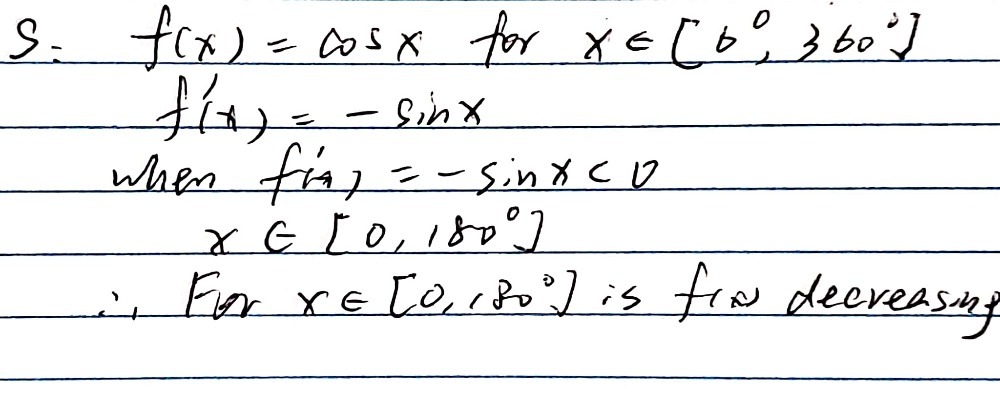 S: f(x) = cos x for x ∈ [0°, 360°]
f'(x) = - sin x
when f'(x) = - sin x < 0
x ∈ [0, 180°]
∴ For x ∈ [0, 180°] is f(x) decreasing